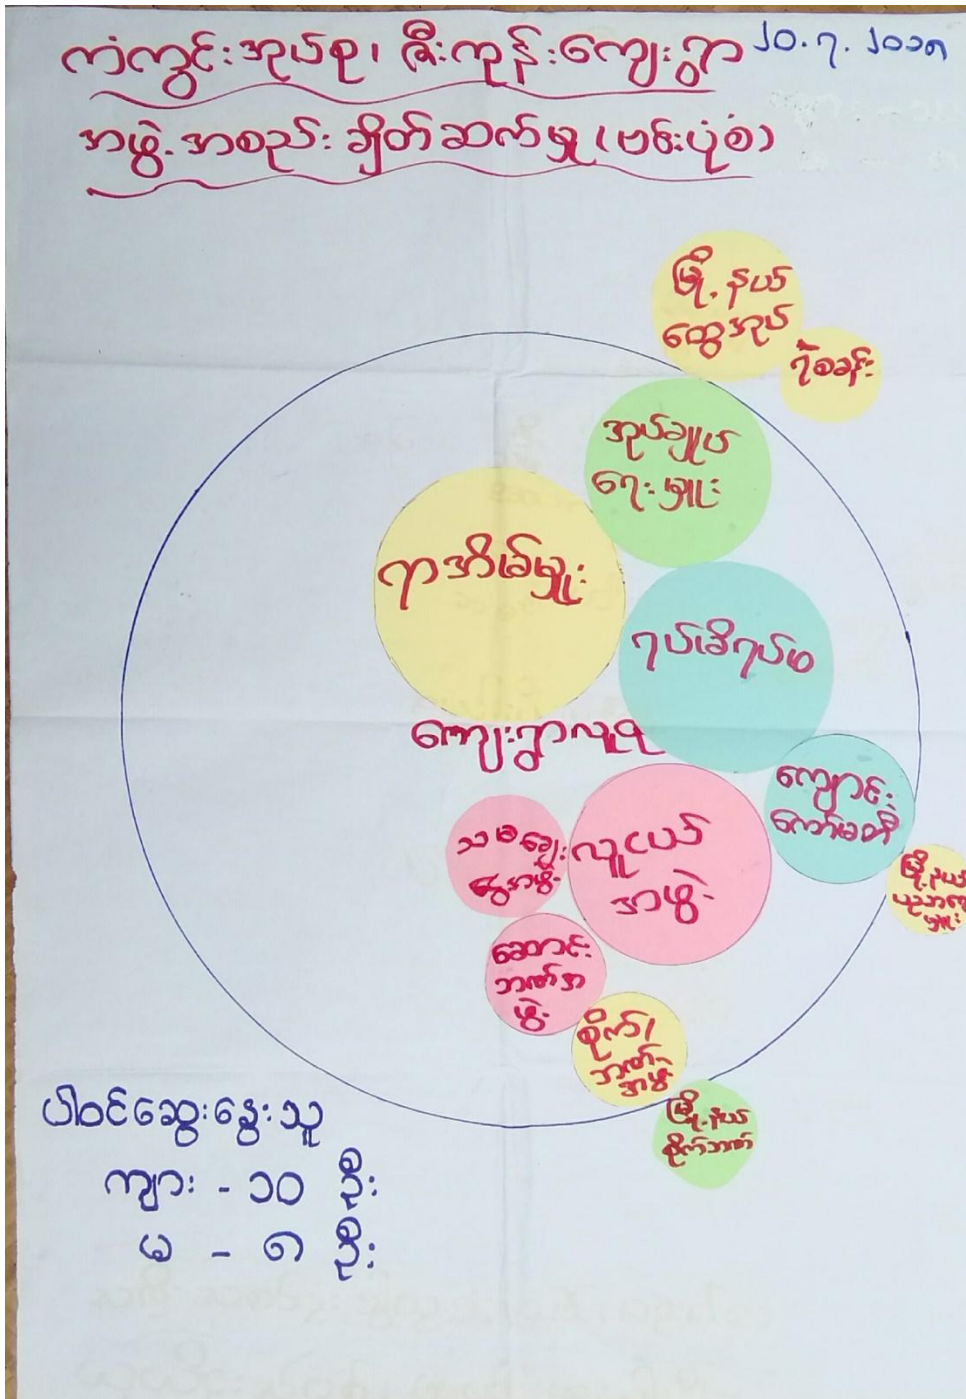 ကံကွင်းအုပ်စု၊ ဇီးကုန်းကျေးရွာ ၂၀.၇.၂၀၁၈
အဖွဲ့အစည်းချိတ်ဆက်မှု (ဗင်းပုံစံ)
မြို့နယ်
ထွေအုပ်
ရဲစခန်း
အုပ်ချုပ်
ရေးမှူး
ရာအိမ်မှူး
ရပ်မိရပ်ဖ
ကျေးရွာလူထု
ကျောင်း
ကော်မတီ
မြို့နယ်
ပညာရေး
မှူး
သမချေး
ငွေအဖွဲ့
လူငယ်
အဖွဲ့
ဆောင်း
ဘဏ်အ
ဖွဲ့
စိုက်/
ဘဏ်
အဖွဲ့
မြို့နယ်
စိုက်ဘဏ်
ပါဝင်ဆွေးနွေးသူ
ကျား - ၁၀ ဦး
မ - ၈ ဦး